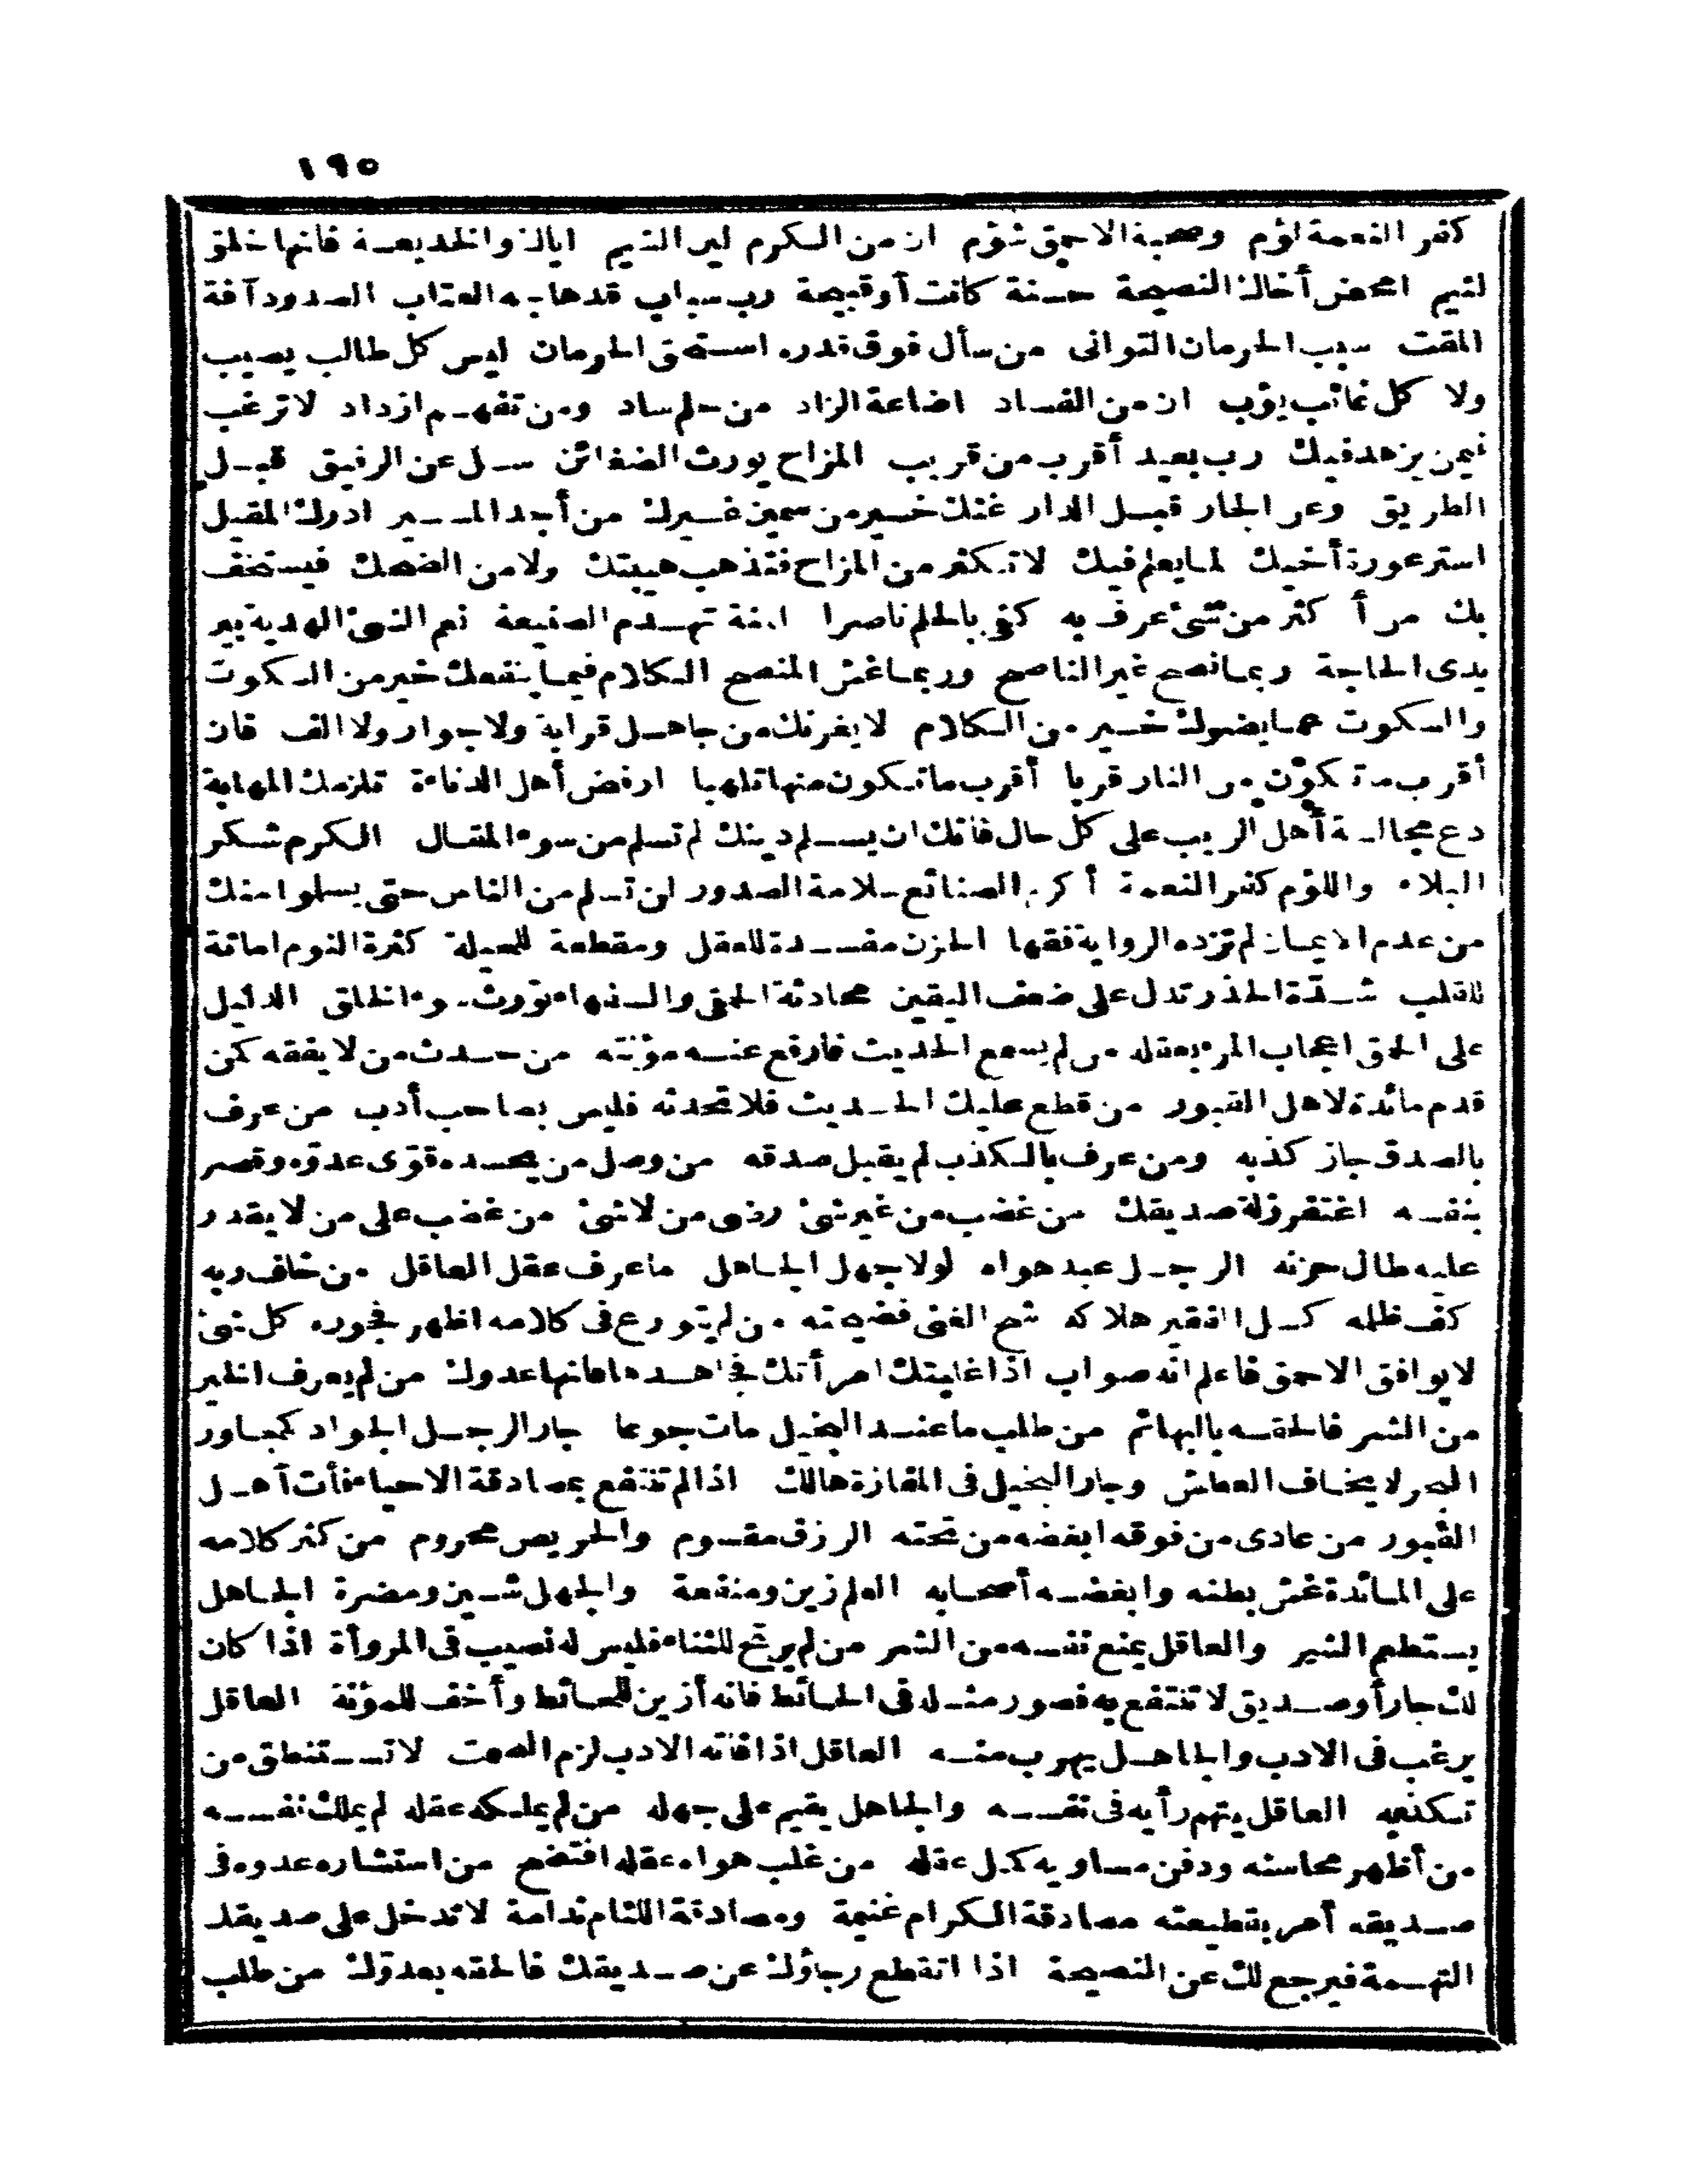 ١٩٥
كفر النعمة لؤم وصحبة الاحمق شؤم ان من الكرم لين الشيم اياك والخديعة فانها خلق
لئيم امحض أخاك النصيحة حسنة كانت أو قبيحة رب سباب قدهاجه العتاب الصدود آفة
المقت سبب الحرمان التوانى من سأل فوق قدره استحق الحرمان ليس كل طالب يصيب
ولا كل غائب يؤب ان من الفساد اضاعة الزاد من حلم ساد ومن تفهم ازداد لا ترغب
فيمن يزهد فيك رب بعيد أقرب من قريب المزاح يورث الضغائن سل عن الرفيق قبل
الطريق وعن الجار قبل الدار غثك خير من سمين غيرك من أجد المسير ادرك المقيل
استر عورة أخيك لما يعلم فيك لا تكثر من المزاح فتذهب هيبتك ولا من الضحك فيستخف
بك من أكثر من شئ عرف به كفى بالحلم ناصرا المنة تهدم الصنيعة نعم الشئ الهدية بين
يدى الحاجة ربما نصح غير الناصح وربما غش المنصح الكلام فيما ينفعك خير من السكوت
والسكوت عما يضرك خير من الكلام لا يغرنك من جاهل قرابة ولا جوار ولا الف فان
أقرب ما تكون من النار قربا أقرب ما تكون منها تلهبا ارفض أهل الدناءة تلزمك المهابة
دع مجالسة أهل الريب على كل حال فانك ان يسلم دينك لم تسلم من سوء المقال الكرم شكر
البلاء واللؤم كفر النعمة أكرم الصنائع سلامة الصدور لن تسلم من الناس حتى يسلموا منك
من عدم الايمان لم تزده الرواية فقها الحزن مفسدة للعقل ومقطعة للحيلة كثرة النوم اماتة
للقلب شدة الحذر تدل على ضعف اليقين محادثة الحمقى والسفهاء تورث سوء الخلق الدليل
على الحمق اعجاب المرء بعقله من لم يسمع الحديث فارفع عنه مؤنته من حدث من لا يفقه كمن
قدم مائدة لاهل القبور من قطع عليك الحديث فلا تحدثه فليس بصاحب أدب من عرف
بالصدق جاز كذبه ومن عرف بالكذب لم يقبل صدقه من وصل من يحسده قوّى عدوّه وقصر
بنفسه اغتفر زلة صديقك من غضب من غير شئ رضى من لا شئ من غضب على من لا يقدر
عليه طال حزنه الرجل عبد هواه لولا جهل الجاهل ما عرف عقل العاقل من خاف ربه
كف ظلمه كسل الفقير هلاكه شح الغنى فضيحته من لم يتورع فى كلامه اظهر فجوره كل شئ
لا يوافق الاحمق فاعلم انه صواب اذا غلبتك امرأتك فجاهدها فانها عدوك من لم يعرف الخير
من الشر فالحقه بالبهائم من طلب ما عند البخيل مات جوعا جار الرجل الجواد كمجاور
البحر لا يخاف العطش وجار البخيل فى المفازة هالك اذا لم تنتفع بمصادقة الاحياء فأت آهل
القبور من عادى من فوقه ابغضه من تحته الرزق مقسوم والحريص محروم من كثر كلامه
على المائدة غش بطنه وابغضه أصحابه العلم زين ومنفعة والجهل شين ومضرة الجاهل
يستطعم الشر والعاقل يمنع نفسه من الشر من لم يرتح للثناء فليس له نصيب فى المروأة اذا كان
لك جار أو صديق لا تنتفع به فصور مثله فى الحائط فانه أزين للحائط وأخف للمؤنة العاقل
يرغب فى الادب والجاهل يهرب منه العاقل اذا فاته الادب لزم الصمت لا تستنطق من
تسكنعه العاقل يتهم رأيه فى نفسه والجاهل يقيم على جهله من لم يملكه عقله لم يملك نفسه
من أظهر محاسنه ودفن مساويه كمل عقله من غلب هواه عقله افتضح من استشار عدوه فى
صديقه أمر بقطيعته مصادقة الكرام غنيمة ومصادقة اللئام ندامة لا تدخل على صديقك
التهمة فيرجع لك عن النصيحة اذا انقطع رجاؤك عن صديقك فالحقه بعدوّك من طلب